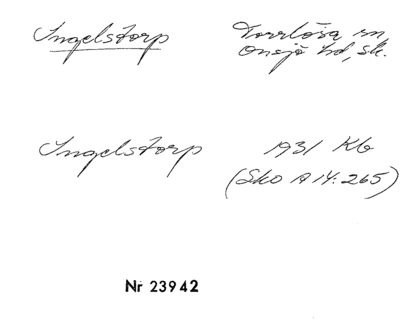 Ingelstorp
Torrlösa sn
Onsjö hd, Sk.
Ingelstorp
1931 Kb
(Sko A 14: 265)
Nr 23942